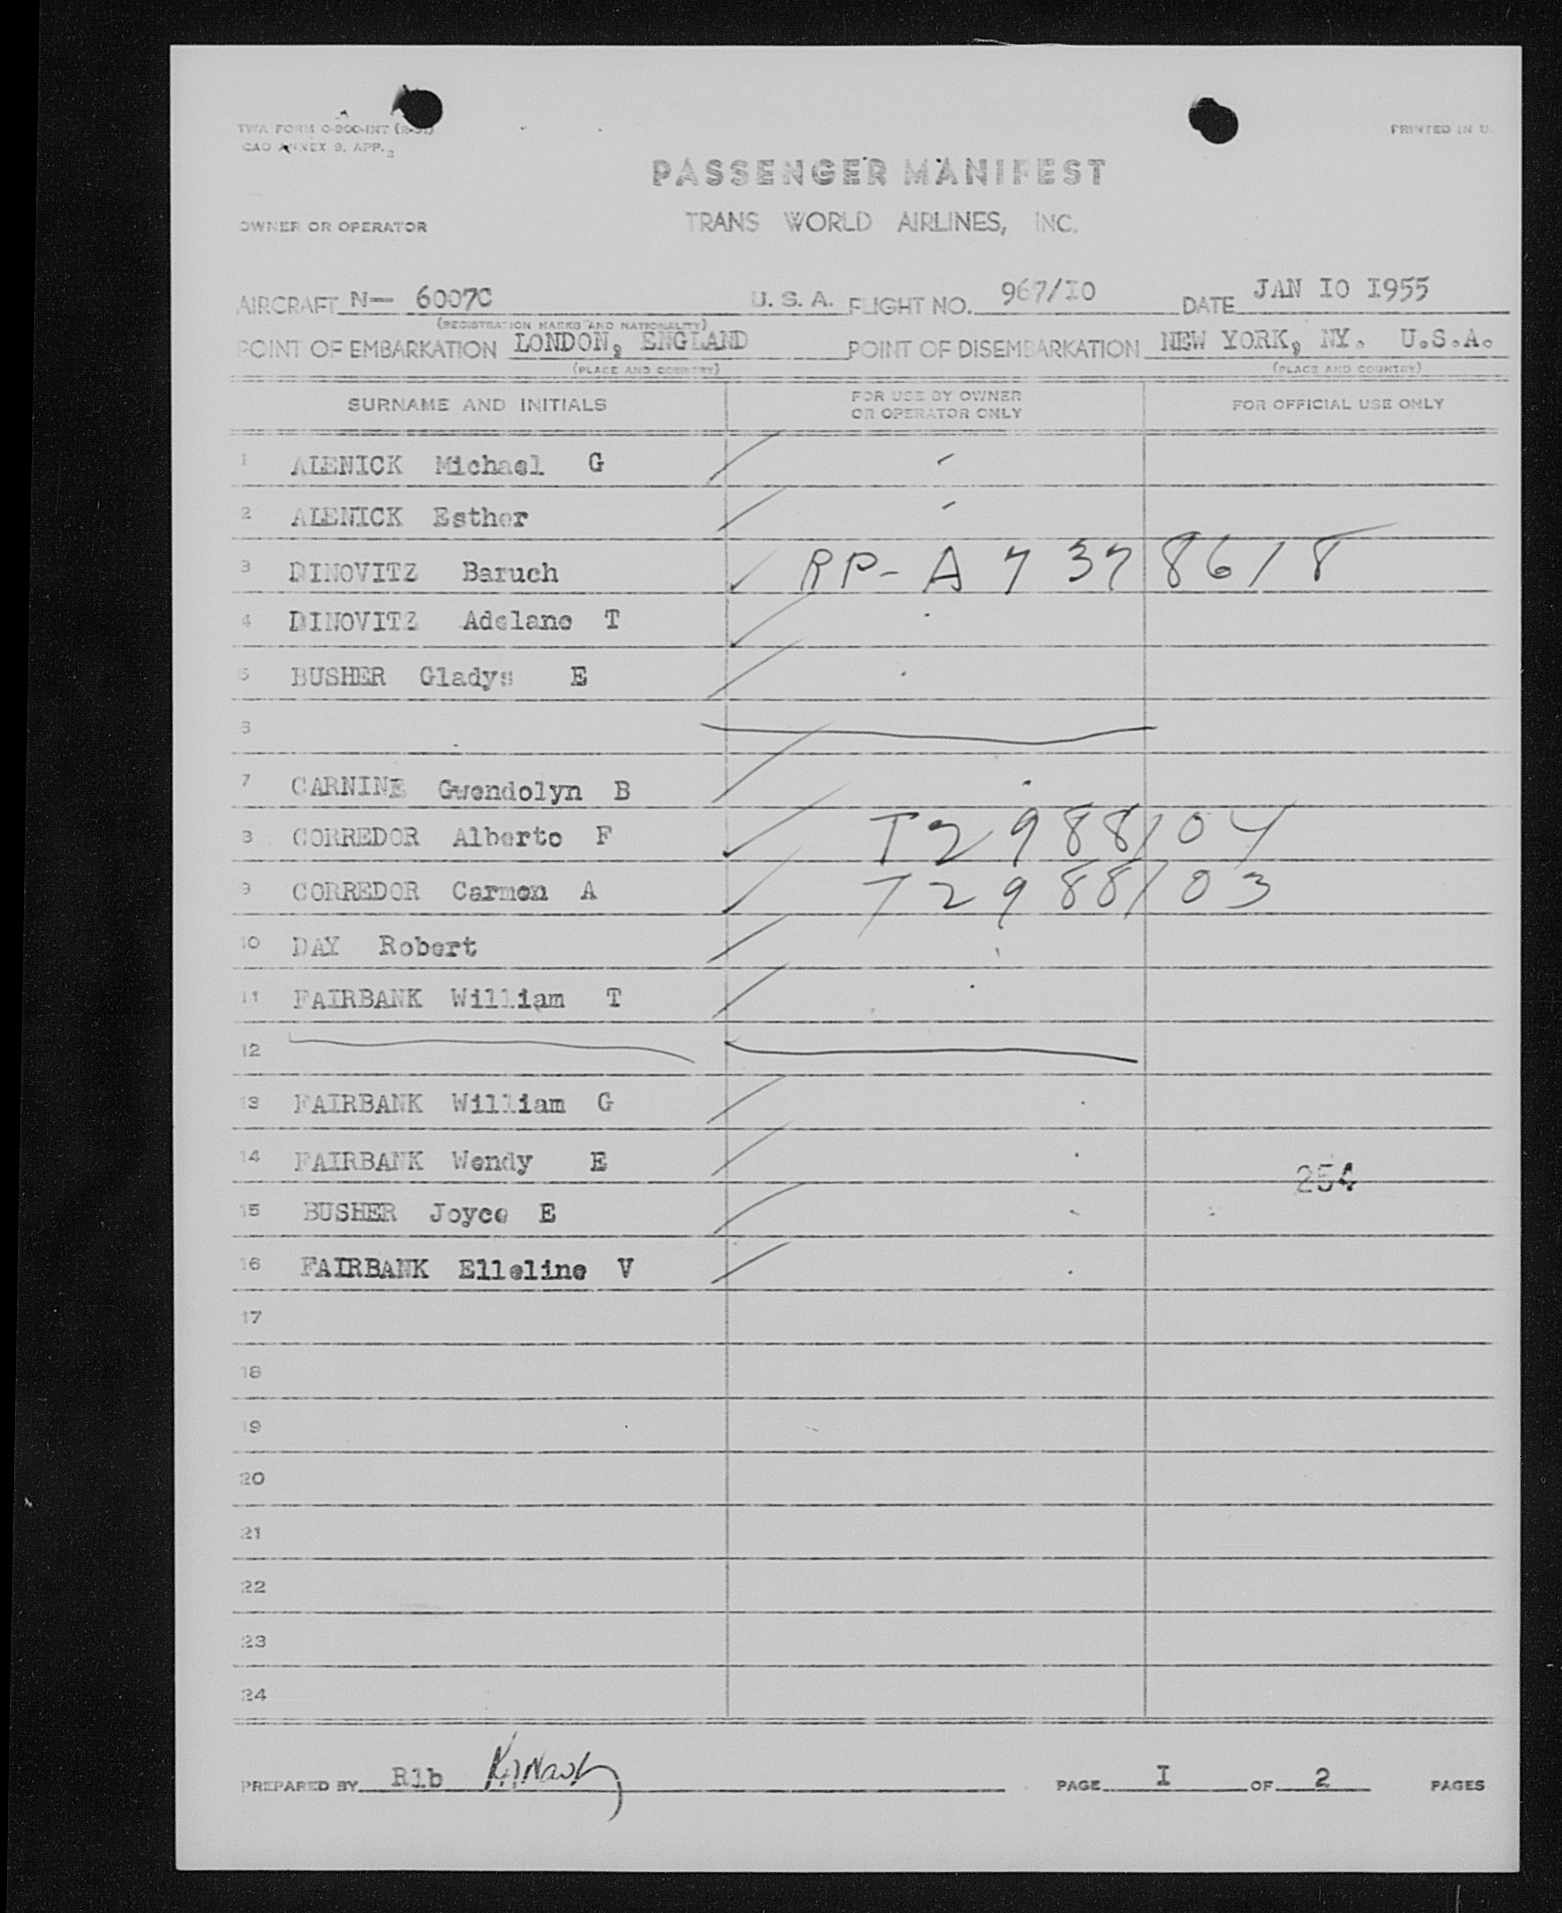 TWA FORM 0-900-INT
CAO ANNEX 9, APP. 2
PRINTED IN U.
PASSENGER MANIFEST
OWNER OR OPERATOR
TRANS WORLD AIRLINES, INC.
AIRCRAFT N— 6007C U. S. A. FLIGHT NO. 967/I0 DATE JAN I0 I955
(REGISTRATION MARKS AND NATIONALITY)
POINT OF EMBARKATION LONDON, ENGLAND POINT OF DISEMBARKATION NEW YORK, NY. U.S.A.
(PLACE AND COUNTRY) (PLACE AND COUNTRY)
SURNAME AND INITIALS FOR USE BY OWNER OR OPERATOR ONLY FOR OFFICIAL USE ONLY
1 ALENICK Michael G
2 ALENICK Esther
3 DINOVITZ Baruch RP-A7378618
4 DINOVITZ Adelane T
5 BUSHER Gladys E
6
7 CARNINE Gwendolyn B
8 CORREDOR Alberto F T2988104
9 CORREDOR Carmen A T2988103
10 DAY Robert
11 FAIRBANK William T
12
13 FAIRBANK William G
14 FAIRBANK Wendy E
254
15 BUSHER Joyce E
16 FAIRBANK Elleline V
17
18
19
20
21
22
23
24
PREPARED BY Rlb PAGE I OF 2 PAGES